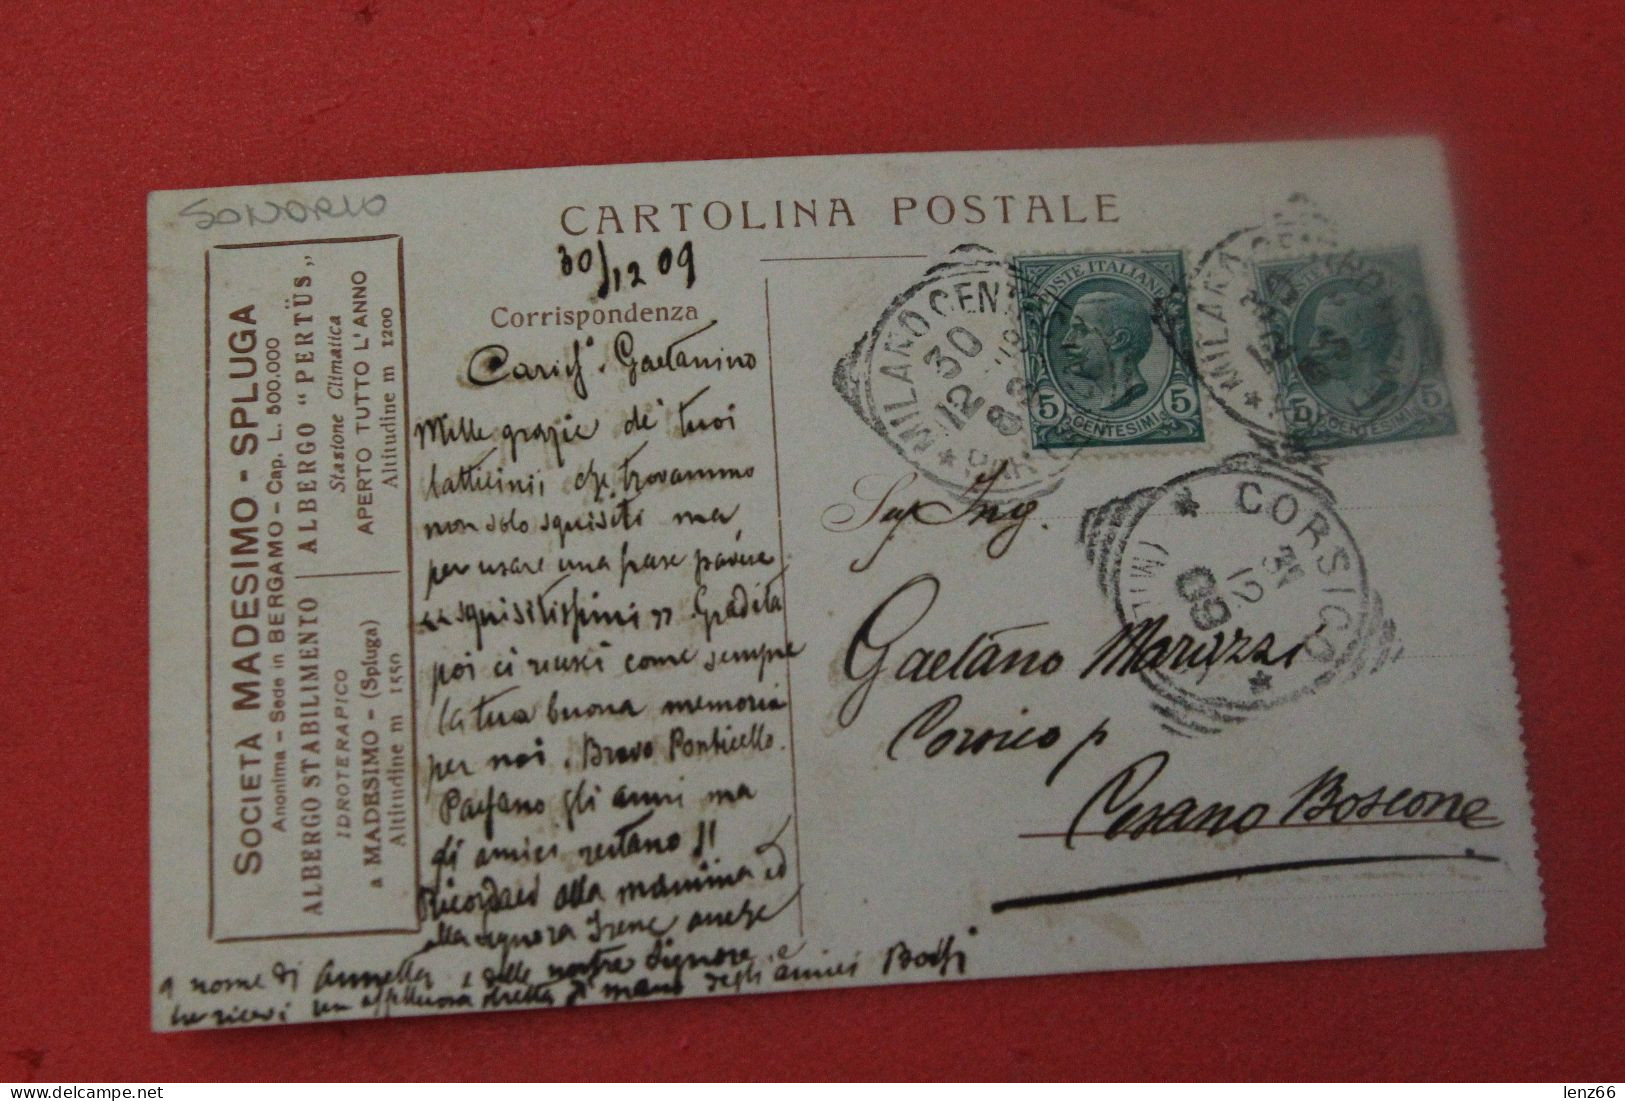 SONDRIO
CARTOLINA POSTALE
30/12 09
Corrispondenza
SOCIETÀ MADESIMO - SPLUGA
Anonima - Sede in BERGAMO - Cap. L. 500.000
ALBERGO STABILIMENTO
IDROTERAPICO
a MADESIMO - (Spluga)
Altitudine m 1550
ALBERGO “PERTÜS„
Stazione Climatica
APERTO TUTTO L'ANNO
Altitudine m 1200
Gaetanino
Mille grazie de' tuoi
latticinii che trovammo
non solo squisiti ma
per usare una frase
squisitissimi" Gradita
poi ci riesci come sempre
la tua buona memoria
per noi. Bravo Ponticello.
Passano gli anni ma
gli amici restano!!
Ricordaci alla mamma ed
alla signora Irene anche
a nome di Annetta e delle nostre Signore
tu ricevi un affettuosa stretta di mano degli amici
MILANO CENTRO
30
12
09
POSTE ITALIANE
5 5
CENTESIMI
MILANO CENTRO
POSTE ITALIANE
5 5
CENTESIMI
CORSICO
(MILANO)
31
12
09
Ing.
Gaetano Marazzi
Corsico p
Cesano Boscone
lenz66